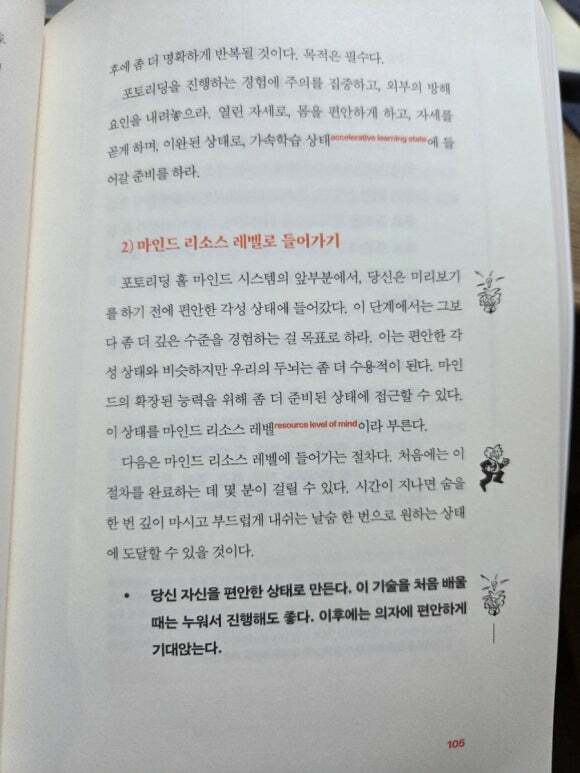 후에 좀 더 명확하게 반복될 것이다. 목적은 필수다.
포토리딩을 진행하는 경험에 주의를 집중하고, 외부의 방해
요인을 내려놓으라. 열린 자세로, 몸을 편안하게 하고, 자세를
곧게 하며, 이완된 상태로, 가속학습 상태accelerative learning state에 들
어갈 준비를 하라.
2) 마인드 리소스 레벨로 들어가기
포토리딩 홀 마인드 시스템의 앞부분에서, 당신은 미리보기
를 하기 전에 편안한 각성 상태에 들어갔다. 이 단계에서는 그보
다 좀 더 깊은 수준을 경험하는 걸 목표로 하라. 이는 편안한 각
성 상태와 비슷하지만 우리의 두뇌는 좀 더 수용적이 된다. 마인
드의 확장된 능력을 위해 좀 더 준비된 상태에 접근할 수 있다.
이 상태를 마인드 리소스 레벨resource level of mind이라 부른다.
다음은 마인드 리소스 레벨에 들어가는 절차다. 처음에는 이
절차를 완료하는 데 몇 분이 걸릴 수 있다. 시간이 지나면 숨을
한 번 깊이 마시고 부드럽게 내쉬는 날숨 한 번으로 원하는 상태
에 도달할 수 있을 것이다.
• 당신 자신을 편안한 상태로 만든다. 이 기술을 처음 배울
때는 누워서 진행해도 좋다. 이후에는 의자에 편안하게
기대앉는다.
105